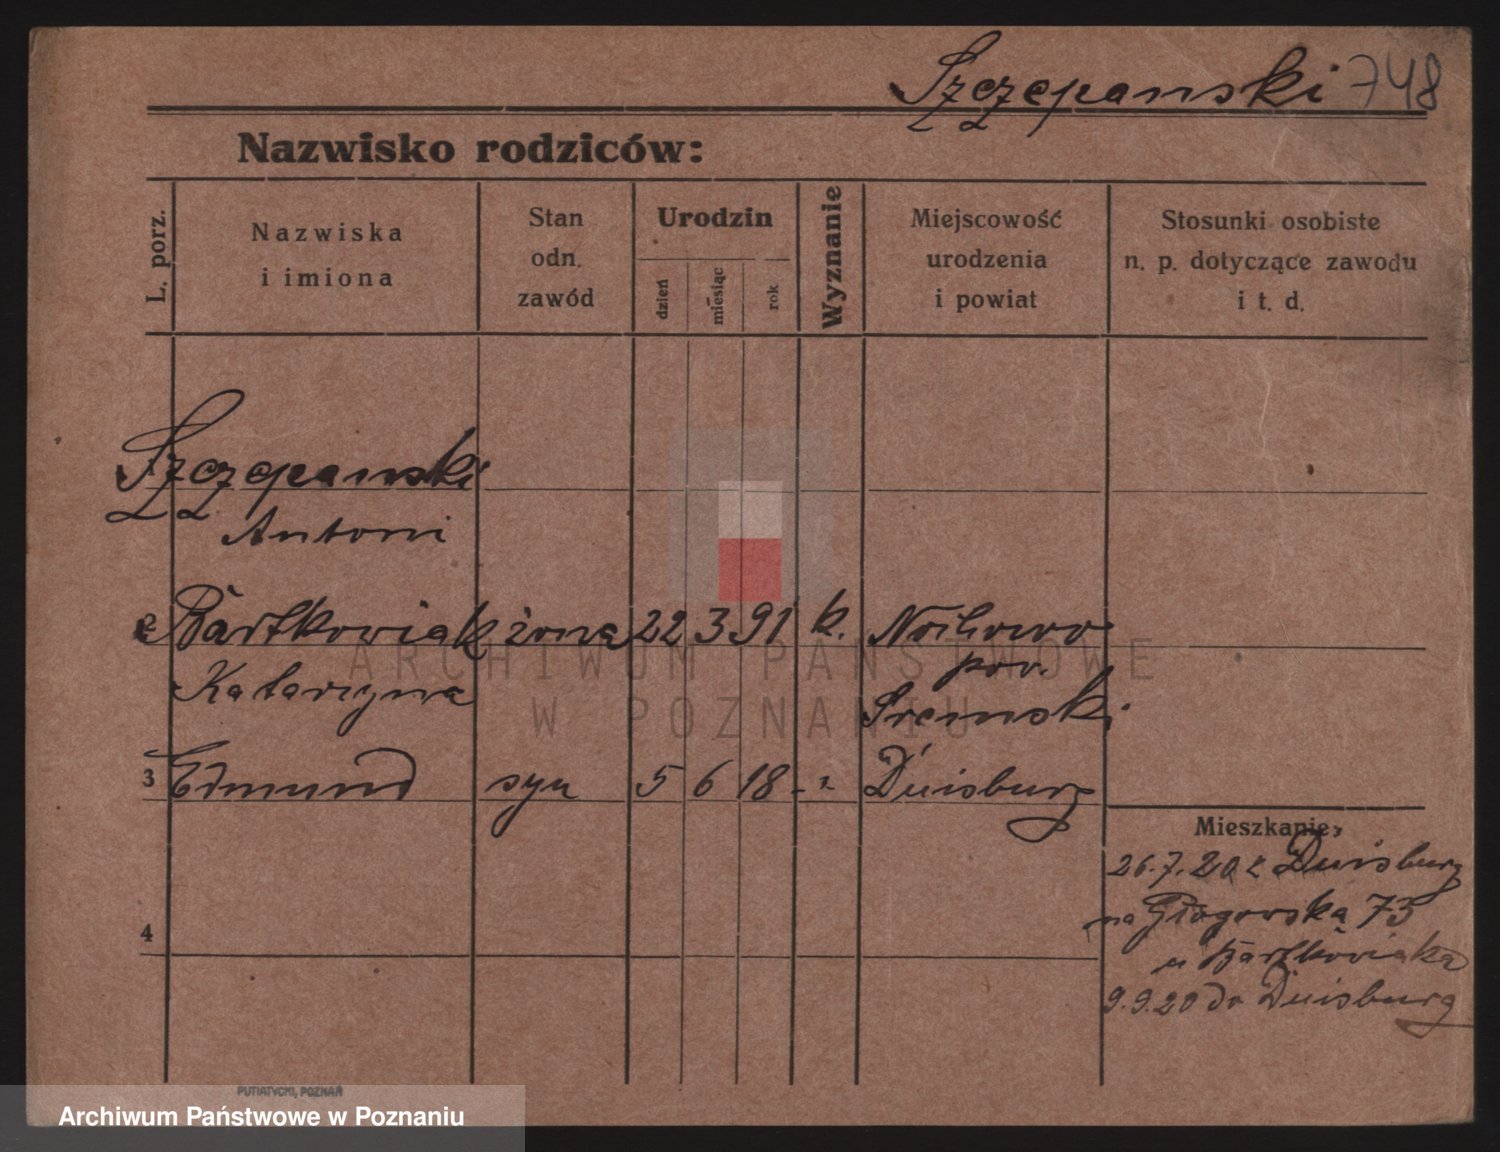 Szczepanski 748
Nazwisko rodziców:
L. porz.
Nazwiska
i imiona
Stan
odn.
zawód
Urodzin
dzień
miesiąc
rok
Wyznanie
Miejscowość
urodzenia
i powiat
Stosunki osobiste
n. p. dotyczące zawodu
i t. d.
Szczepanski
Antoni
2 Bartkowiak żona 22 3 91 k.
Katarzyna
pow.
Sremski
3 Edmund syn 5 6 18 Duisburg
Mieszkanie,
26.7.20 z Duisburg
na Głogowska 73
u Bartkowiaka
9.9.20 do Duisburg
4
ARCHIWUM PAŃSTWOWE
W POZNANIU
PUTIATYCKI, POZNAŃ
Archiwum Państwowe w Poznaniu